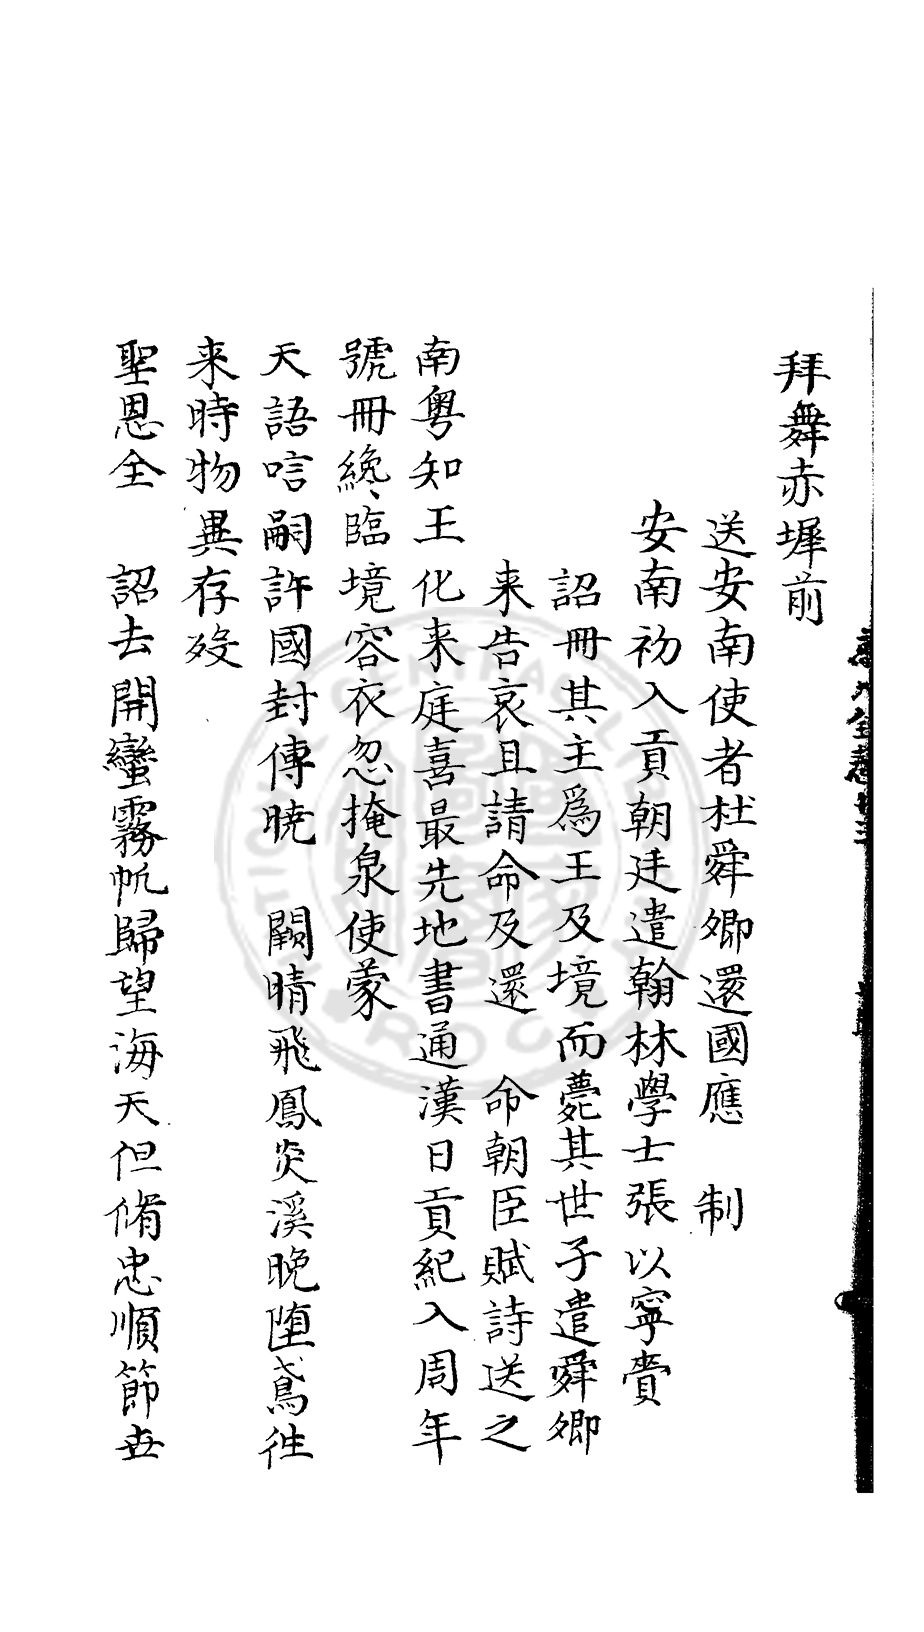 拜舞赤墀前
送安南使者杜舜卿還國應　制
安南初入貢朝廷遣翰林學士張以寧賫
詔冊其主爲王及境而薨其世子遣舜卿
来告哀且請命及還　命朝臣賦詩送之
南粤知王化来庭喜最先地書通漢日貢紀入周年
號冊纔臨境容衣忽掩泉使蒙
天語唁嗣許國封傳曉　闕晴飛鳳炎溪晚墮鳶徃
来時物異存歿
聖恩全　詔去開蠻霧帆歸望海天但脩忠順節世